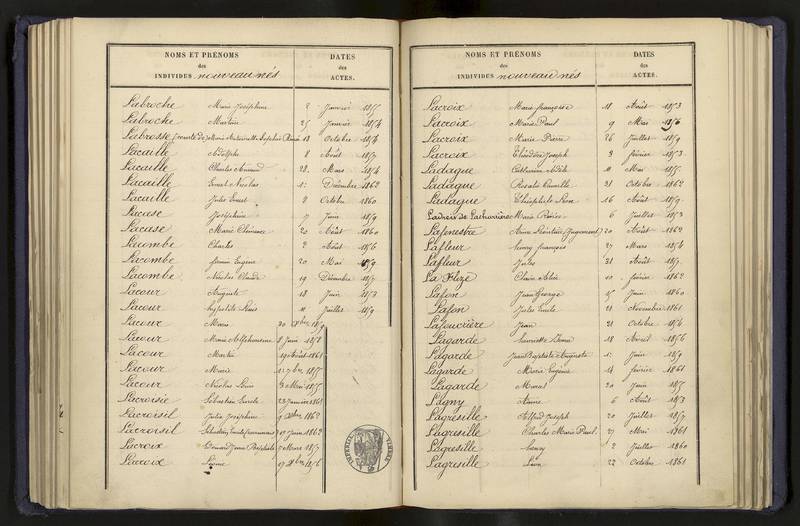 NOMS ET PRÉNOMS DATES
des des
INDIVIDUS nouveau nés ACTES.
Labroche Marie Joséphine 2 Janvier 1855
Labroche Martin 25 Janvier 1854
Labrosse (comte de) Marie Antoinette 18 Octobre 1854
Lacaille Adolphe 8 Août 1857
Lacaille Charles Armand 28 Mars 1854
Lacaille Ernest Nicolas 1er Décembre 1862
Lacaille Jules Ernest 8 Octobre 1860
Lacase Joséphine 7 Juin 1859
Lacase Marie Clémence 20 Août 1860
Lacombe Charles 2 Août 1856
Lacombe firmin Eugène 20 Mai 1859
Lacombe Nicolas Claude 19 Décembre 1857
Lacour Auguste 18 Juin 1853
Lacour hypolite Louis 11 Juillet 1859
Lacour Marie 30 Xbre 1859
Lacour Marie Alphonsine 8 Juin 1858
Lacour Martin 19 Août 1861
Lacour Marie 11 7bre 1855
Lacour Nicolas Léon 3 Mai 1855
Lacroisie Sébastien Emile 23 Janvier 1861
Lacroisil Julie Joséphine 9 Xbre 1862
Lacroisil 17 Juin 1862
Lacroix Jean Baptiste 7 Mars 1857
Lacroix 17 Xbre 1856
NOMS ET PRÉNOMS DATES
des des
INDIVIDUS nouveau nés ACTES.
Lacroix Marie françoise 18 Août 1853
Lacroix Marie Paul 9 Mai 1856
Lacroix Marie Pierre 26 Juillet 1859
Lacroix Théodore Joseph 3 février 1853
Ladague Catherine Adèle 11 Mai 1855
Ladague Rosalie Camille 21 Octobre 1862
Ladague Théophile Rose 16 Août 1859
Marie 6 Juillet 1853
Lafenestre (Jugement) 20 Août 1862
Lafleur henry françois 27 Mars 1854
Lafleur Jules 21 Août 1857
La Flize Claire 10 février 1862
Lafon Jean George 25 Juin 1860
Lafon Jules Emile 21 Novembre 1861
Lafoucrière Jean 21 Octobre 1854
Lagarde henriette 18 Août 1856
Lagarde Jean Baptiste Auguste 1er Juin 1859
Lagarde Marie Eugénie 14 février 1861
Lagarde Marcel 20 Juin 1855
Lagny Anne 6 Août 1853
Lagresille Alfred Joseph 20 Juillet 1857
Lagresille Charles Marie Paul 27 Mai 1861
Lagresille henry 2 Juillet 1860
Lagresille Léon 22 Octobre 1861